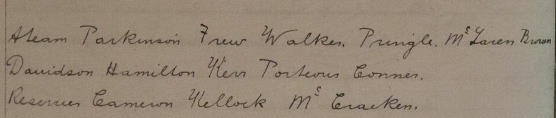 Adam Parkinson Frew Walker. Pringle. McLaren Brown
Davidson Hamilton Kerr Porteous Conner.
Reserves Cameron Kellock McCracken.